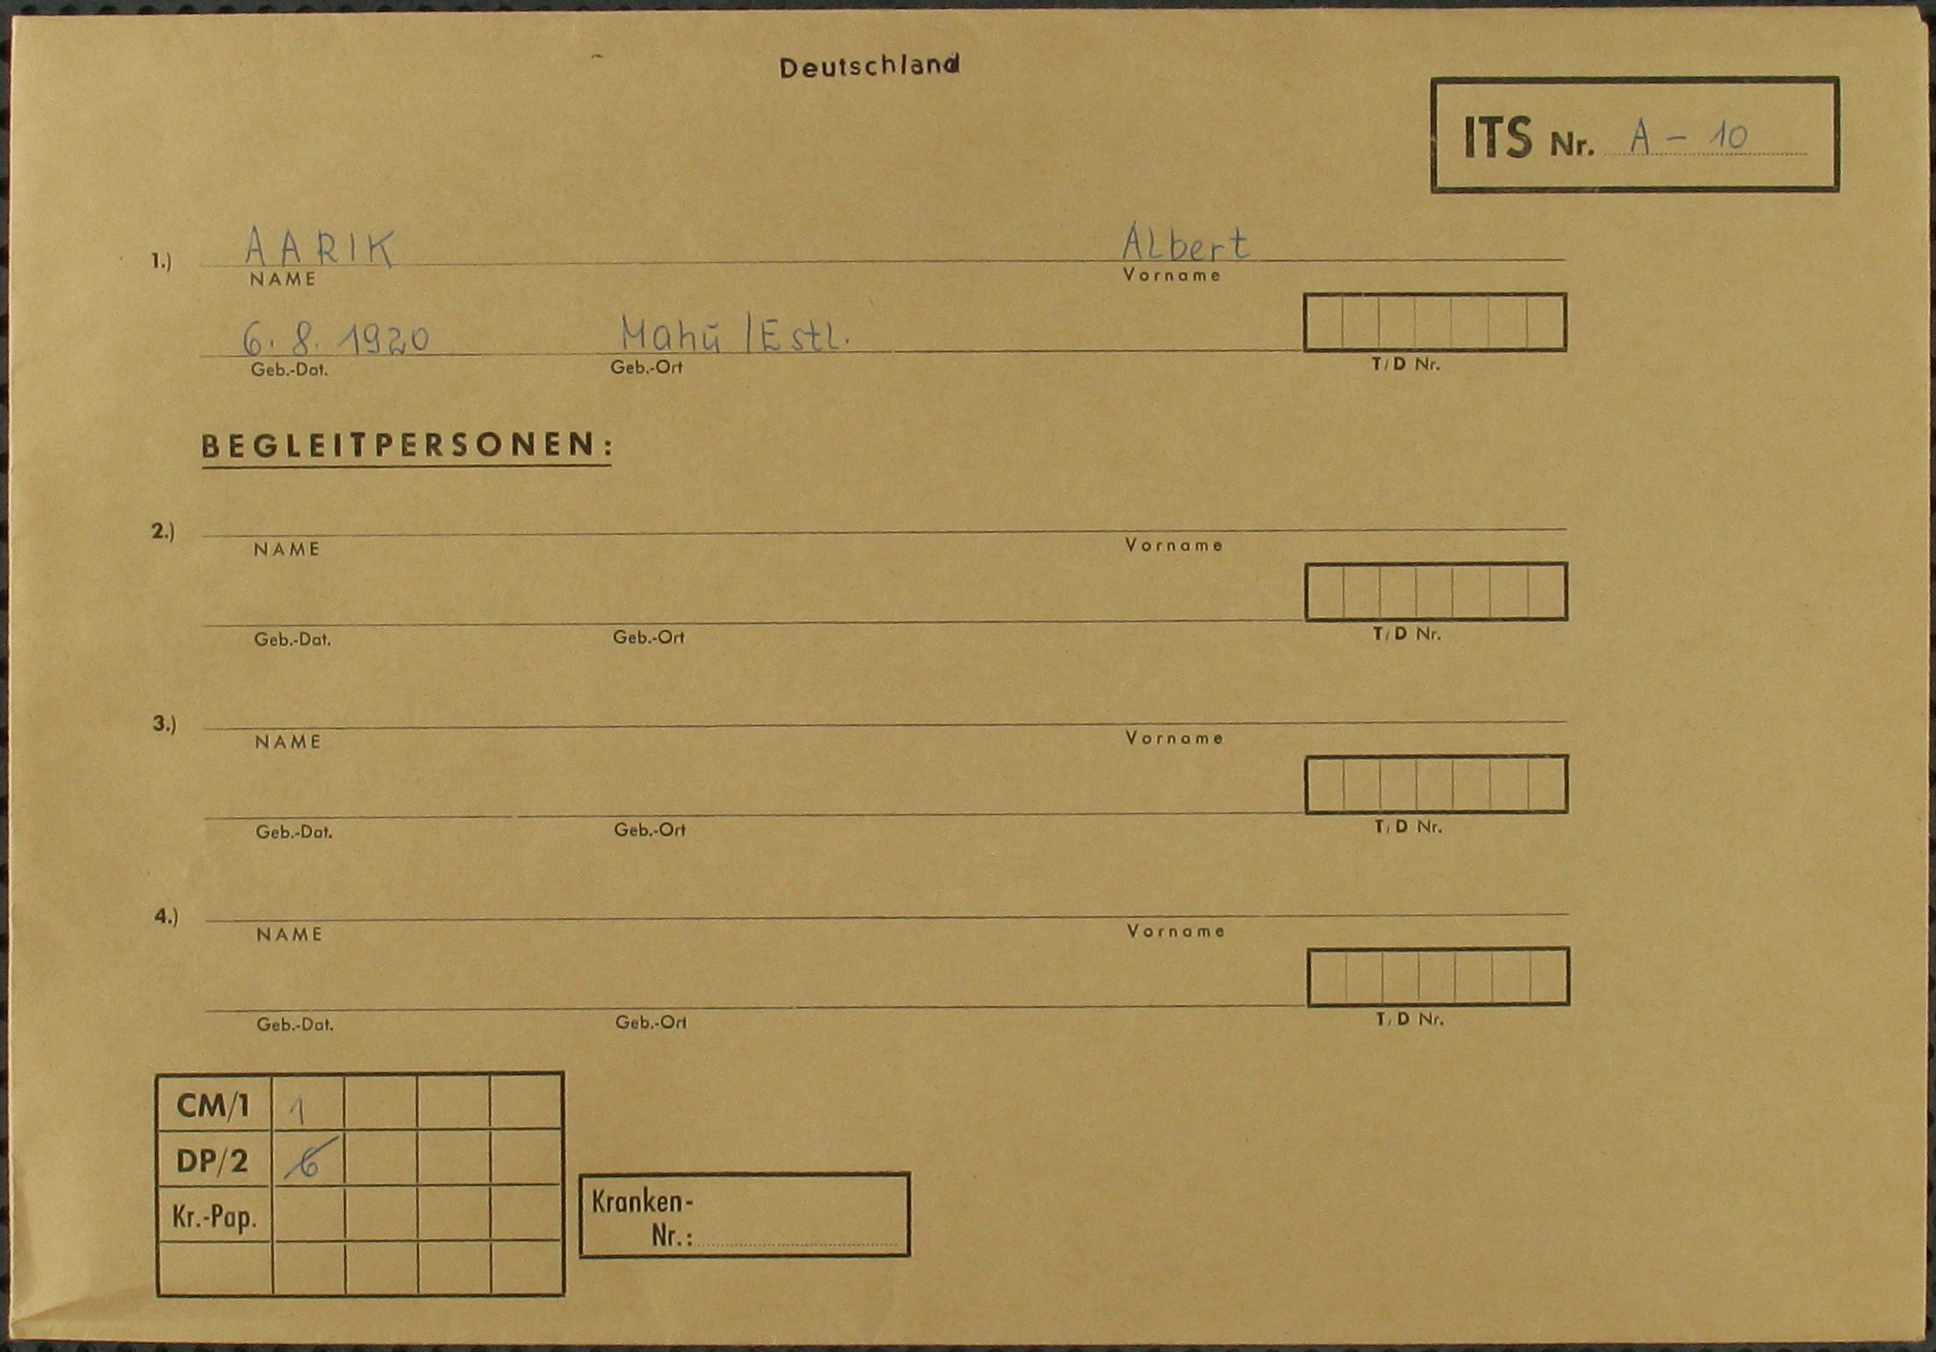 Deutschland
ITS Nr. A - 10
1.) AARIK Albert
NAME Vorname
6. 8. 1920 Mahu /Estl.
Geb.-Dat. Geb.-Ort T/D Nr.
BEGLEITPERSONEN:
2.)
NAME Vorname
Geb.-Dat. Geb.-Ort T/D Nr.
3.)
NAME Vorname
Geb.-Dat. Geb.-Ort T/D Nr.
4.)
NAME Vorname
Geb.-Dat. Geb.-Ort T/D Nr.
CM/1 1
DP/2 6
Kr.-Pap.
Kranken-
Nr.: